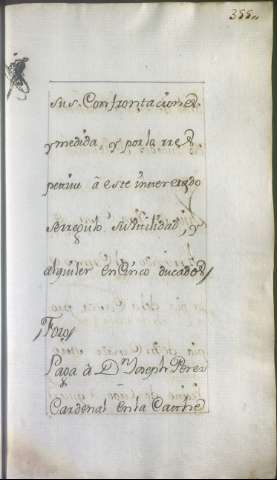 355„
sus Confrontaciones,
y medida, y por la res
pective á este interesado
se reguló su utilidad, y
alquiler en Cinco ducados
Foro
Paga á Dⁿ Joseph Perez
Cardenal en la Cathe